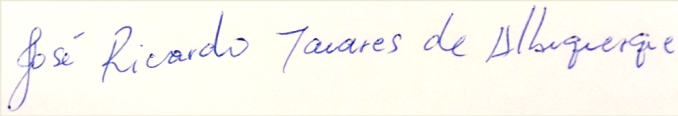 José Ricardo Tavares de Albuquerque